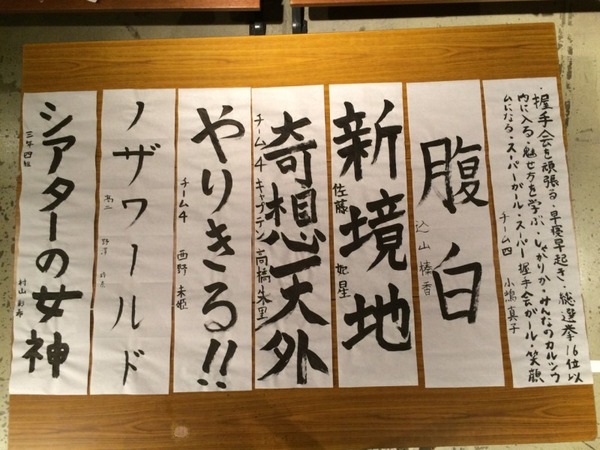 ・握手会を頑張る・早寝早起き・総選挙16位以
内に入る・魅せ方を学ぶ・しゃがりか・みんなのカルシウ
ムになる・スーパーガール・スーパー握手会ガール・笑顔
チーム四 小嶋真子
腹白
込山榛香
新境地
佐藤 妃星
奇想天外
チーム4 キャプテン 高橋朱里
やりきる!!
チーム4 西野 未姫
ノザワールド
高二 野澤
シアターの女神
三年四組 村山 彩希